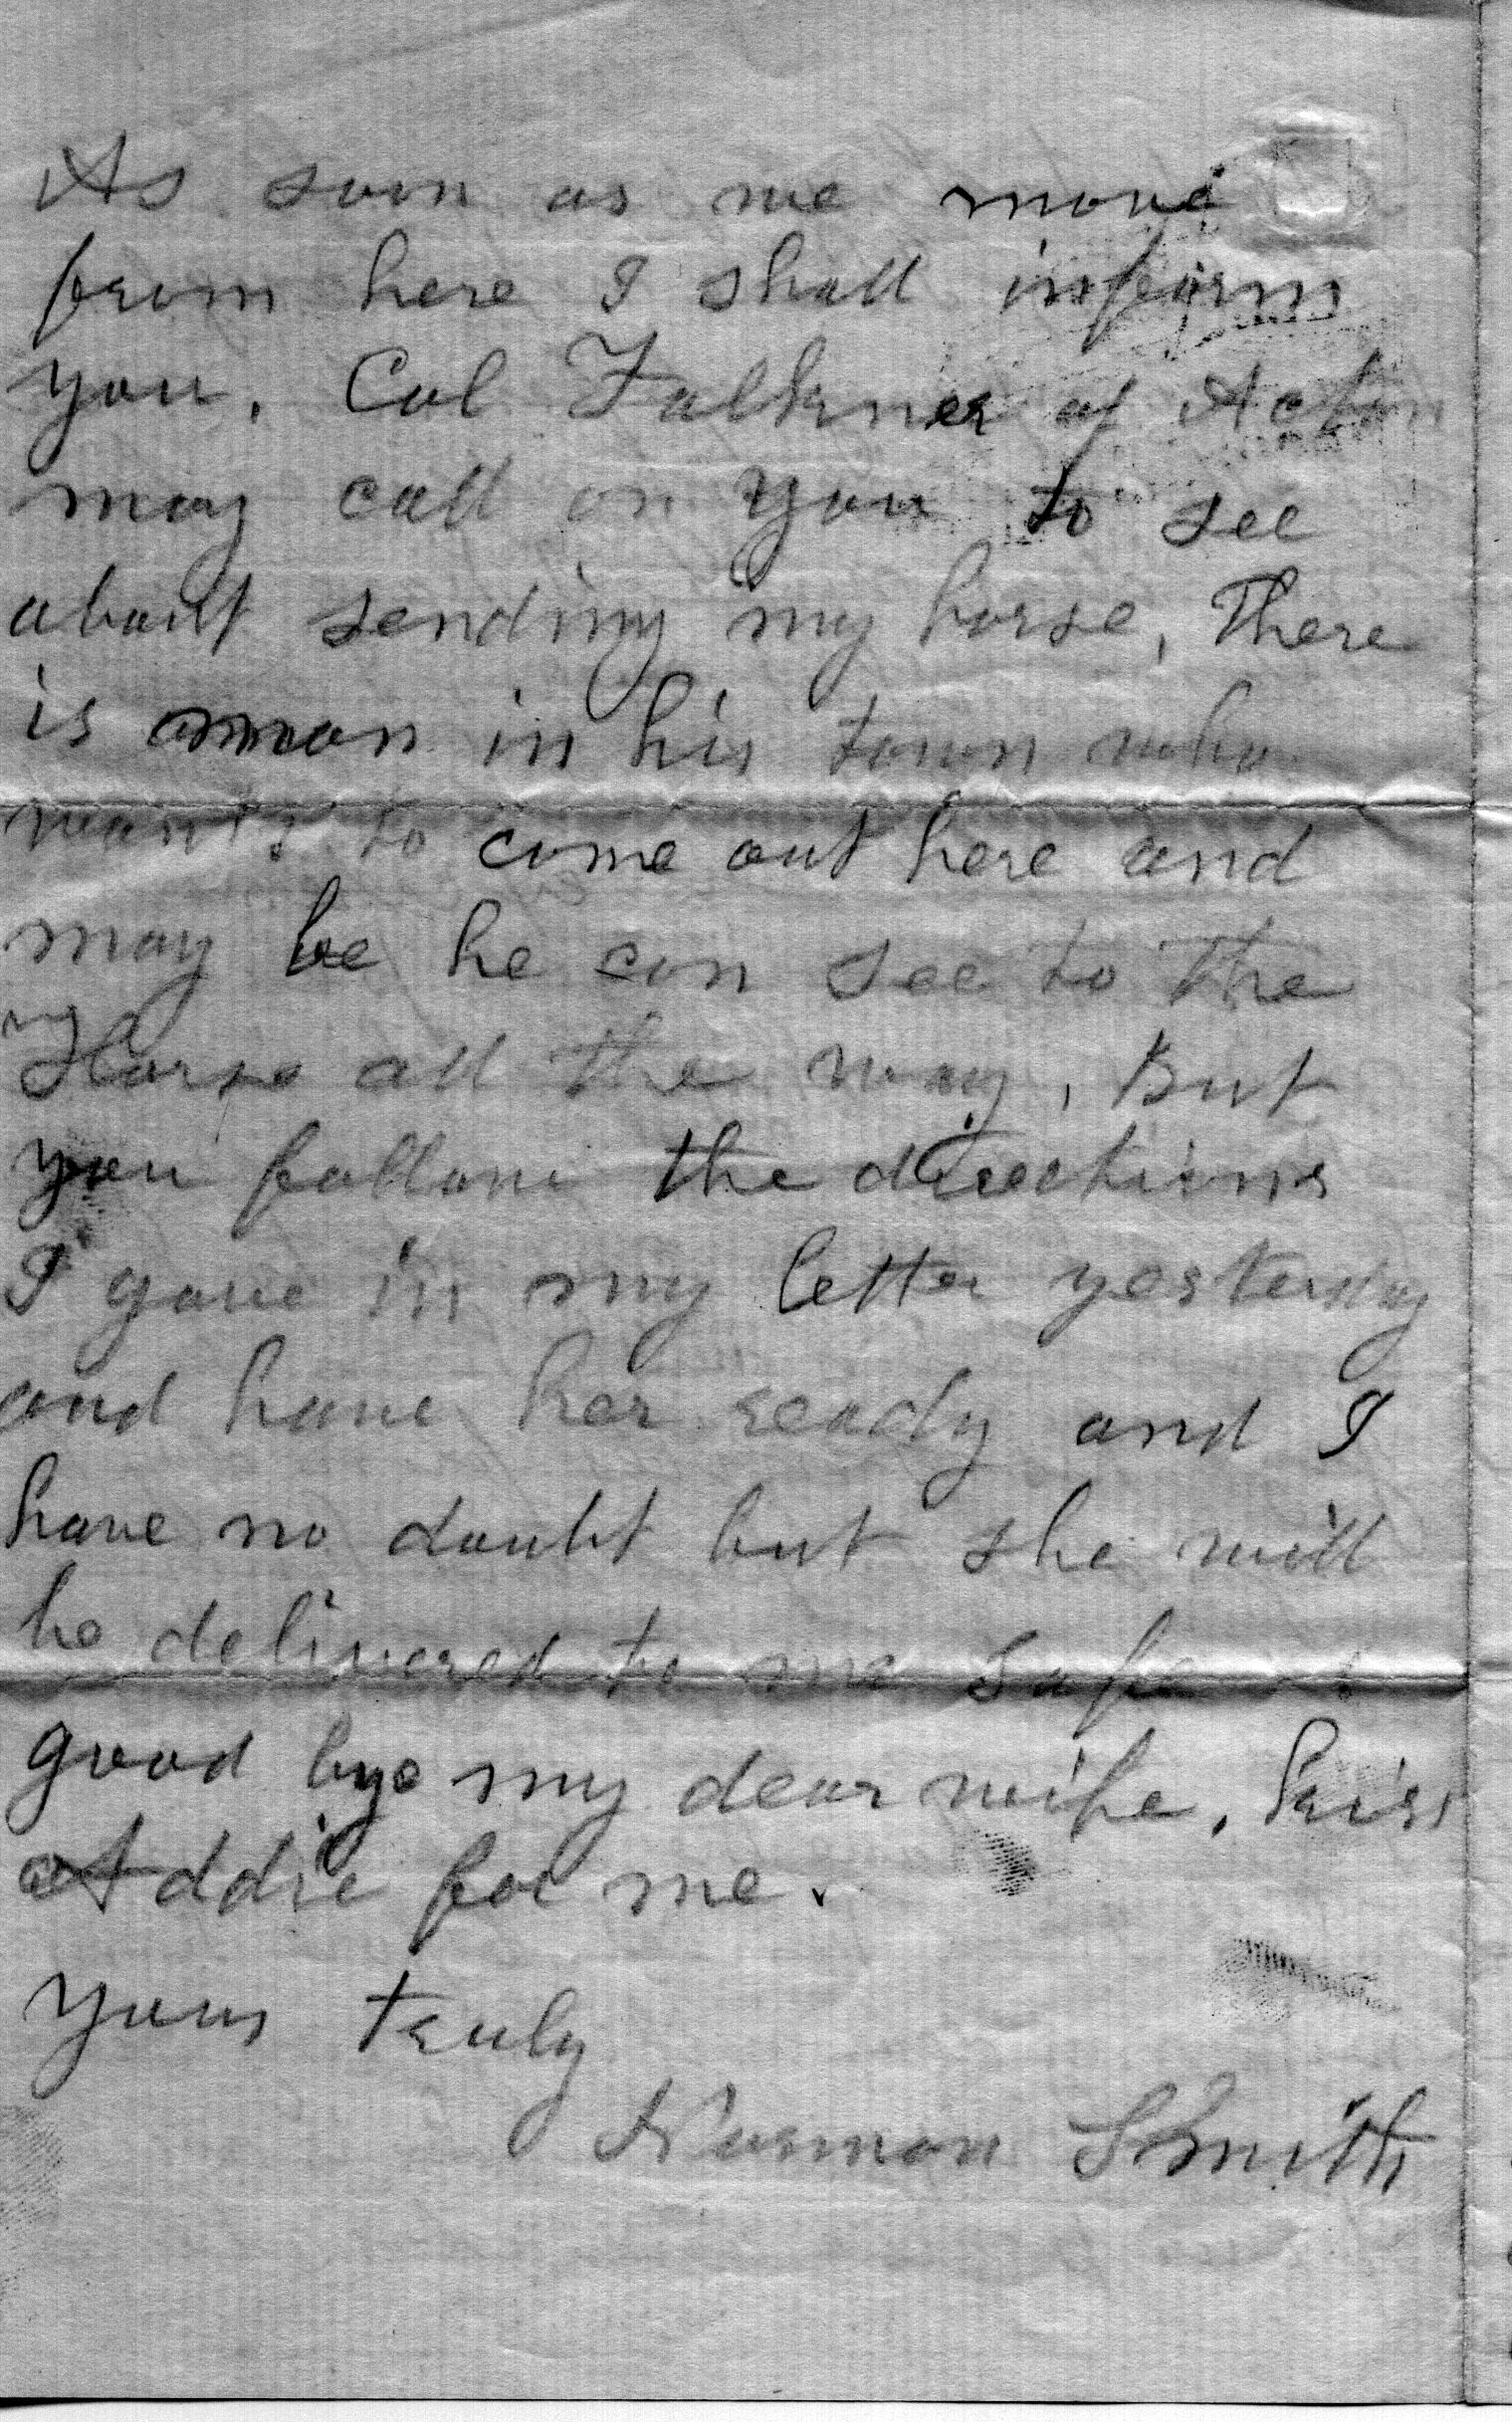 As soon as we move
from here I shall inform
you. Col Falkner of Acton
may call on you to see
about sending my horse, There
is a man in his town who
wants to come out here and
may be he can see to the
my
Horse all the way, But
you follow the directions
I gave in my letter yesterday
and have her ready and I
have no doubt but she will
be delivered to me safe
good bye my dear wife, kiss
Addie for me.
Yours truly
Norman Smith